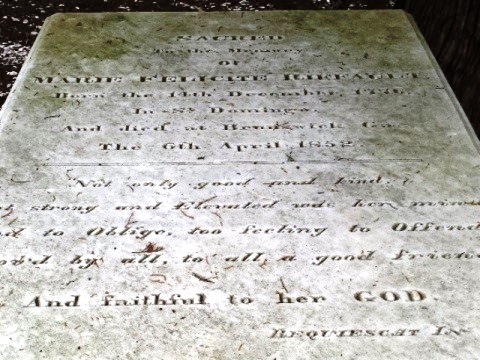 SACRED
To the Memory
OF
MARIE FELICITE
Born the 11th December
In St. Domingo
And died at Brunswick Ga.
The 6th April 1852
Not only good and kind,
strong and Elevated was her
to Oblige, too feeling to Offend
by all, to all, a good
And faithful to her GOD.
REQUIESCAT IN